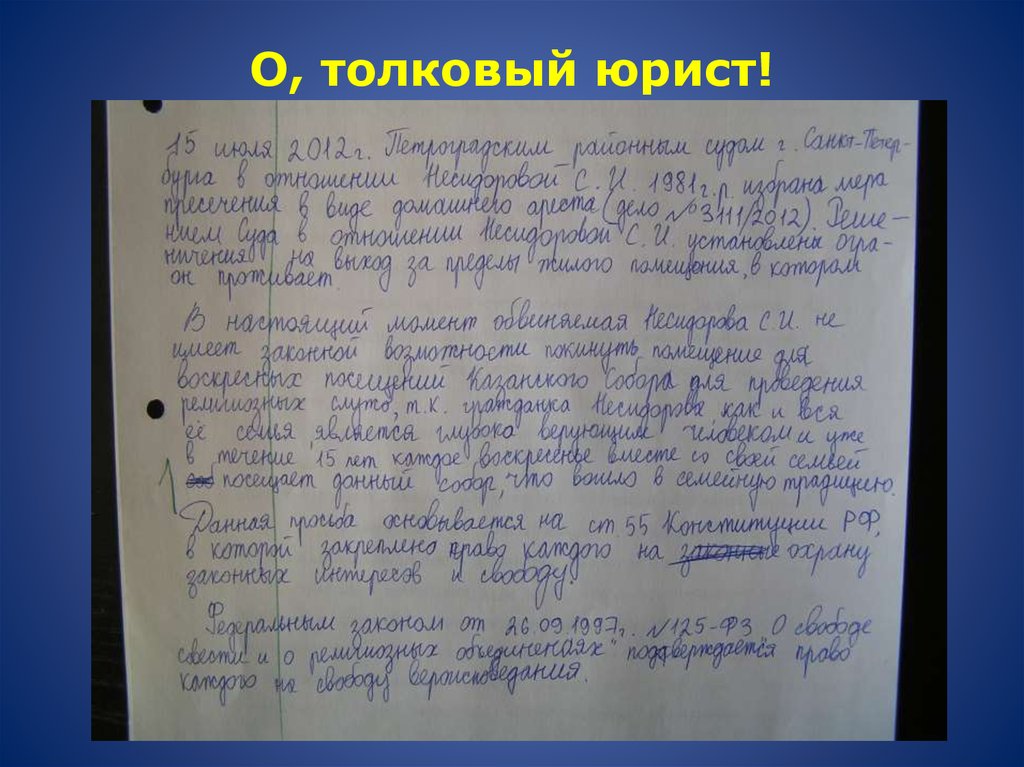 О, толковый юрист!
15 июля 2012г. Петроградским районным судом г. Санкт-Петер-
бурга в отношении Несидоровой С. И. 1981г.р. избрана мера
пресечения в виде домашнего ареста (дело №3111/2012). Реше-
нием Суда в отношении Несидоровой С. И. установлены огра-
ничения на выход за пределы жилого помещения, в котором
он проживает.
В настоящий момент обвиняемая Несидорова С.И. не
имеет законной возможности покинуть помещение для
воскресных посещений Казанского Собора для проведения
религиозных служб, т.к. гражданка Несидорова как и вся
её семья является глубоко верующим человеком и уже
в течение 15 лет каждое воскресенье вместе со своей семьей
посещает данный собор, что вошло в семейную традицию.
Данная просьба основывается на ст 55 Конституции РФ,
в которой закреплено право каждого на законные охрану
законных интересов и свободу.
Федеральным законом от 26.09.1997г. №125-ФЗ О свободе
свести и о религиозных объединенаях" подтверждается право
каждого на свободу вероисповедания.